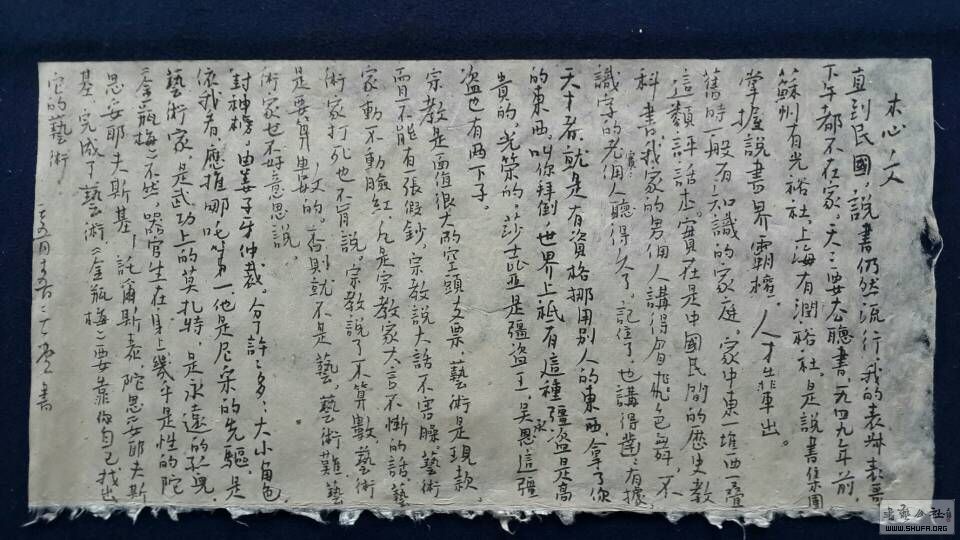 木心文
直到民國，說書仍然流行，我的表叔表哥，
下午都不在家，天天要去聽書，一九四九年前，
蘇州有光裕社，上海有潤裕社，是說書集團
掌握說書界霸榜。人才出輩出。
舊時一般有知識的家庭，家中東一堆西一疊
這類平話，正實在是中國民間的歷史教
科書，我家的男佣人講得眉飛色舞，不
識字的老佣人聽得久了，記住了，也講得鑿鑿有據，
實
天才者，就是有資格挪用別人的東西，拿了你
的東西，叫你拜倒，世界上祇有這種強盜是高
貴的，光榮的。莎士亞是彊盜王，吳恩這彊
承
盜也有两下子。
宗教是面值很大的空頭支票，藝術是現款，
而且不能有一張假鈔，宗教說大話不害臊，藝術
家動不動臉紅，凡是宗教家大言不慚的話，藝
術家打死也不肯說。宗教說了不算數，藝術
是要兌要的。
否則就不是藝，藝術難，藝
術家也不好意思說。
封神榜，由姜子牙仲裁，分了許許多多，大小角色
依我看，應推哪吒第一，他是尼采的先驅，是
藝術家，是武功上的莫扎特，是永遠的孤兒，
金瓶梅》不然，器官生在身上，幾乎是性的陀
思妥耶夫斯基，託爾斯泰，陀思妥耶夫斯
基，完成了藝術《金瓶梅》要靠你自己找出
它的藝術。
書
書法公社
WWW.SHUFA.ORG